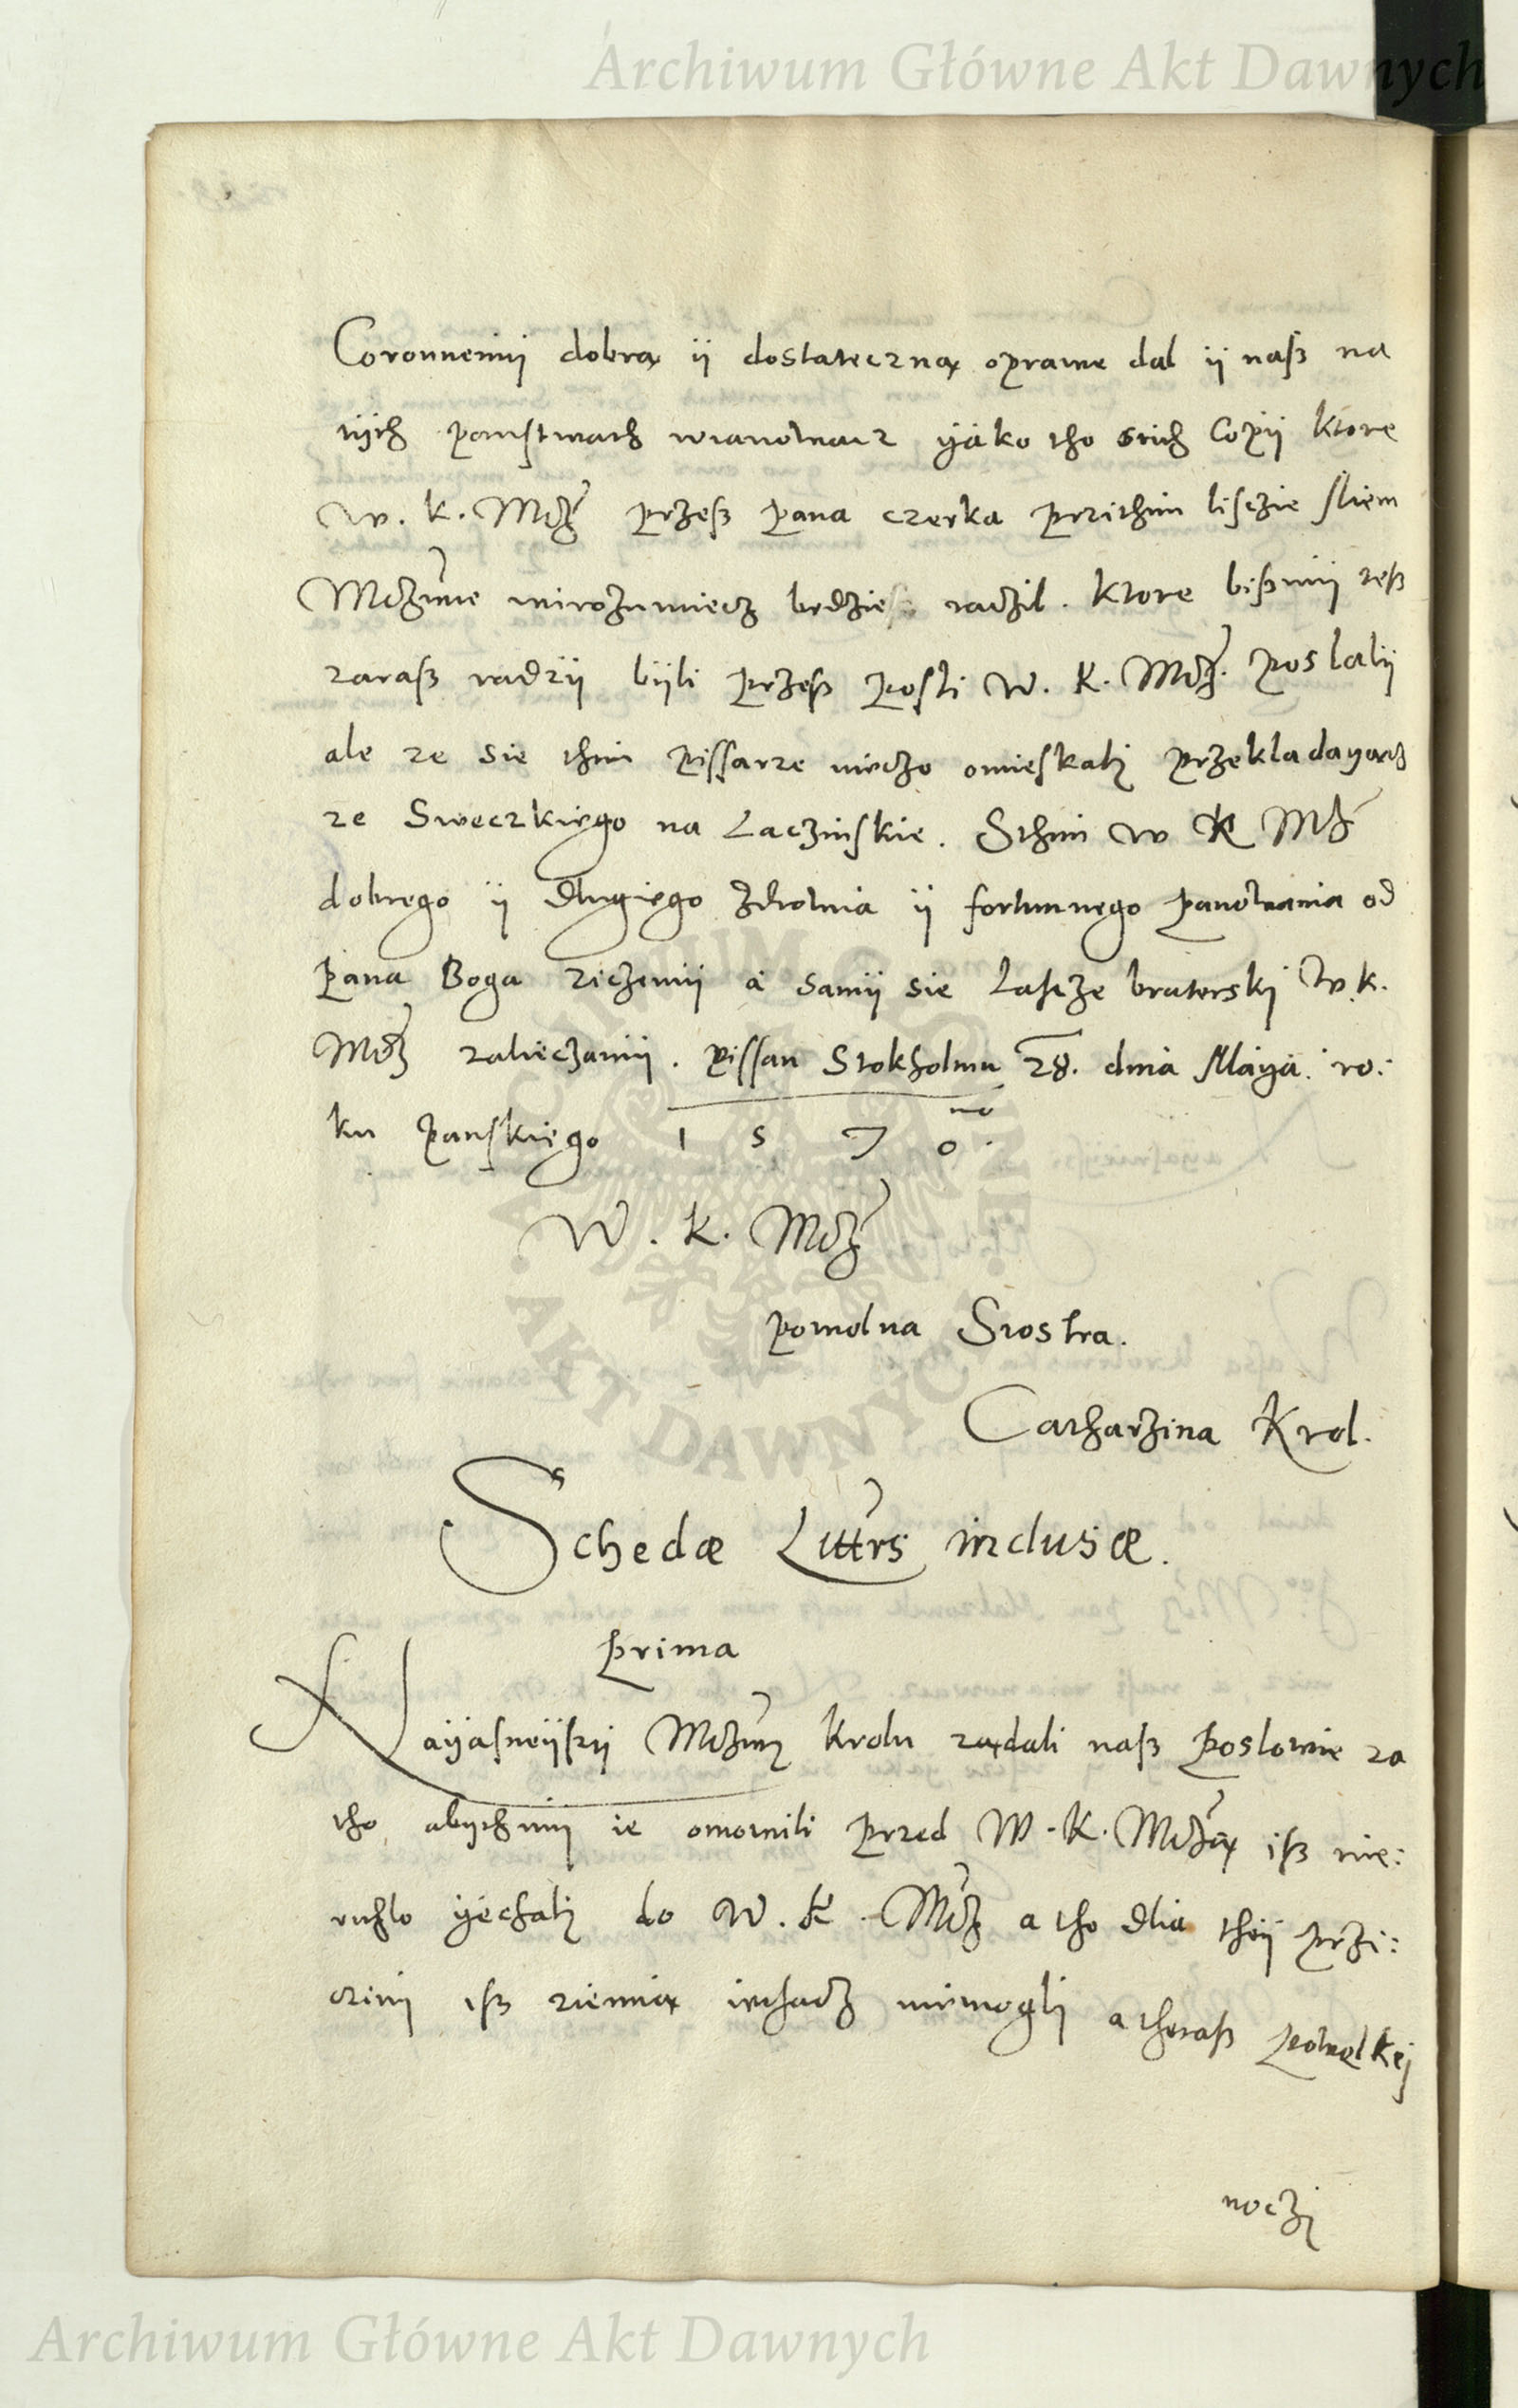 Archiwum Główne Akt Dawnych
Coronnemij dobrą ij dostateczną oprawe dal ij naß na
tijch panstwach wianowacz ijako tho stich Copij ktore
W. K. Mczi przeß pana czerka przithim lisczie sliem
Mcziwie wirozumiecz bedzie raczil. Ktore bißmij teß
zaraß radzij bijli przeß posli W. K. Mczi. poslalij
ale ze sie thim pissarze nieczo omieskali przekladayącz
ze Sweczkiego na Laczinskie. Sthim W K Mczi
dobrego ij dlugiego zdrowia ij fortunnego panowania od
pana Boga ziczemij a samij sie lascze braterski W. K.
Mczi zalieczamij. pissan Stokholmu 28. dnia Maya. ro:
ku panskiego 1 5 7 0. mo
W. K. Mczi
powolna Siostra.
Catharzina Krol.
Schedæ Littrs inclusæ.
prima
Nayasneijszij Mcziwij Krolu ządali naß poslowie za
tho abijchmij ie omowili przed W. K. Mczią iß nie:
richlo yechali do W. K. Mczi a tho dlia theij przi:
czini iß ziemią iechacz niemogli a theraß
noczi
AKT DAWNYCH
Archiwum Główne Akt Dawnych